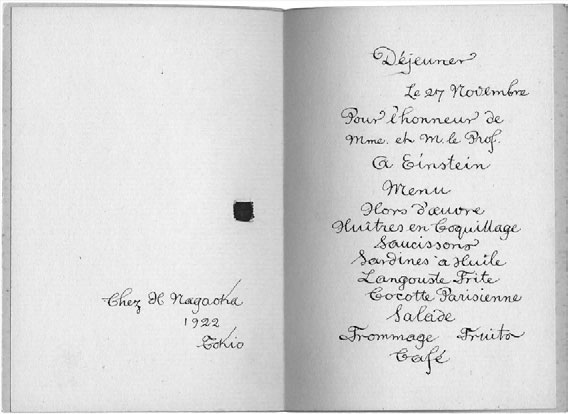 Chez H Nagaoka
1922
Tokio
Déjeuner
Le 27 Novembre
Pour l'honneur de
Mme. et M. le Prof.
A Einstein
Menu
Hors d'œuvre
Huîtres en Coquillage
Saucissons
Sardines à Huile
Langouste Frite
Cocotte Parisienne
Salade
Frommage Fruits
Café